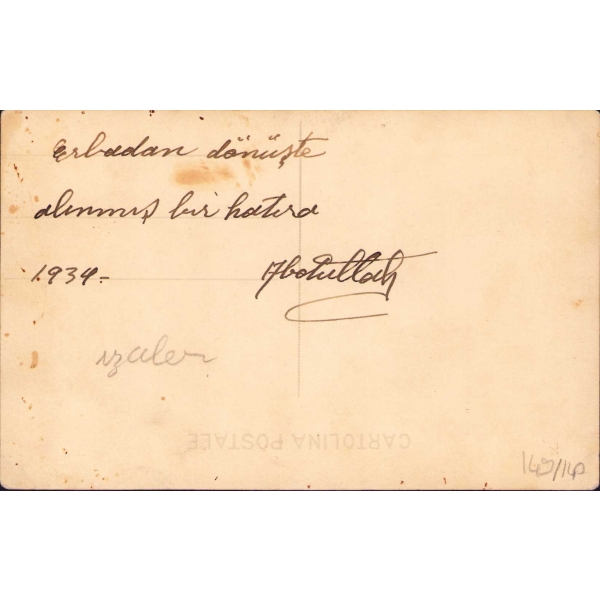 Erbadan dönüşte
alınmış bir hatıra
1934- Abdullah
CARTOLINA POSTALE